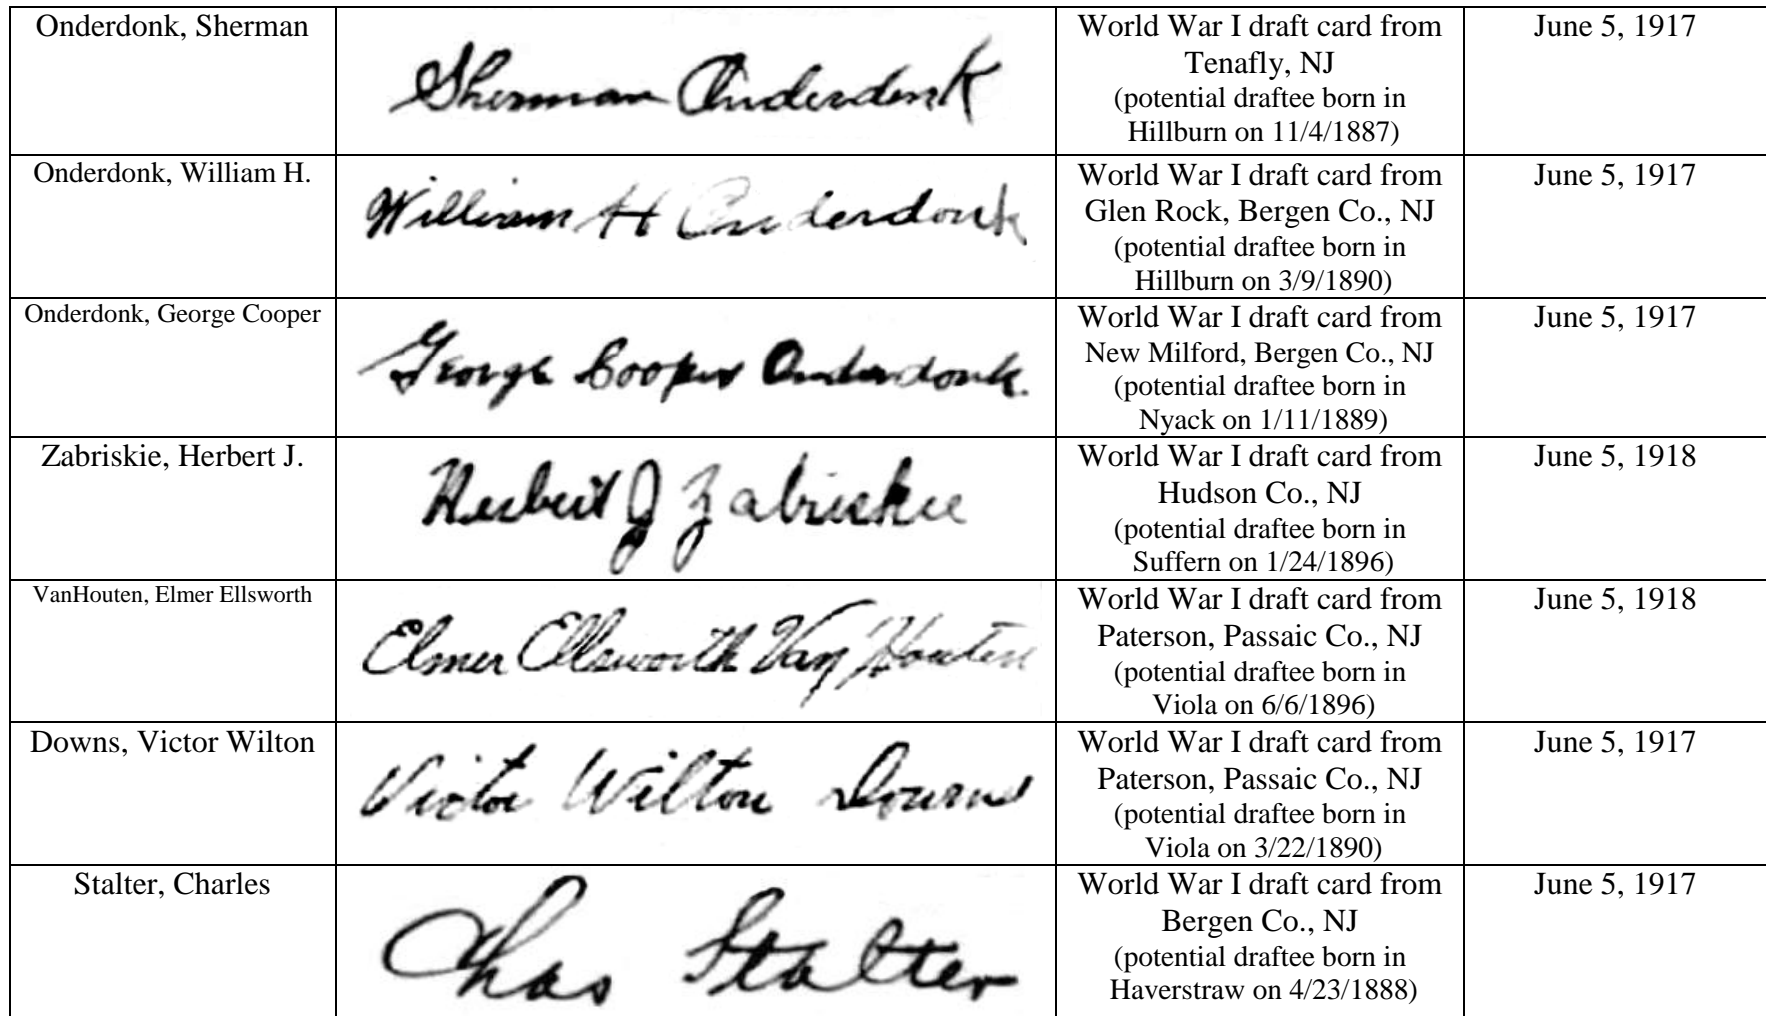 Onderdonk, Sherman
Sherman Onderdonk
World War I draft card from
Tenafly, NJ
(potential draftee born in
Hillburn on 11/4/1887)
June 5, 1917
Onderdonk, William H.
William H Onderdonk
World War I draft card from
Glen Rock, Bergen Co., NJ
(potential draftee born in
Hillburn on 3/9/1890)
June 5, 1917
Onderdonk, George Cooper
George Cooper Onderdonk.
World War I draft card from
New Milford, Bergen Co., NJ
(potential draftee born in
Nyack on 1/11/1889)
June 5, 1917
Zabriskie, Herbert J.
Herbert J Zabriskie
World War I draft card from
Hudson Co., NJ
(potential draftee born in
Suffern on 1/24/1896)
June 5, 1918
VanHouten, Elmer Ellsworth
Elmer Ellsworth Van Houten
World War I draft card from
Paterson, Passaic Co., NJ
(potential draftee born in
Viola on 6/6/1896)
June 5, 1918
Downs, Victor Wilton
Victor Wilton Downs
World War I draft card from
Paterson, Passaic Co., NJ
(potential draftee born in
Viola on 3/22/1890)
June 5, 1917
Stalter, Charles
Chas Stalter
World War I draft card from
Bergen Co., NJ
(potential draftee born in
Haverstraw on 4/23/1888)
June 5, 1917